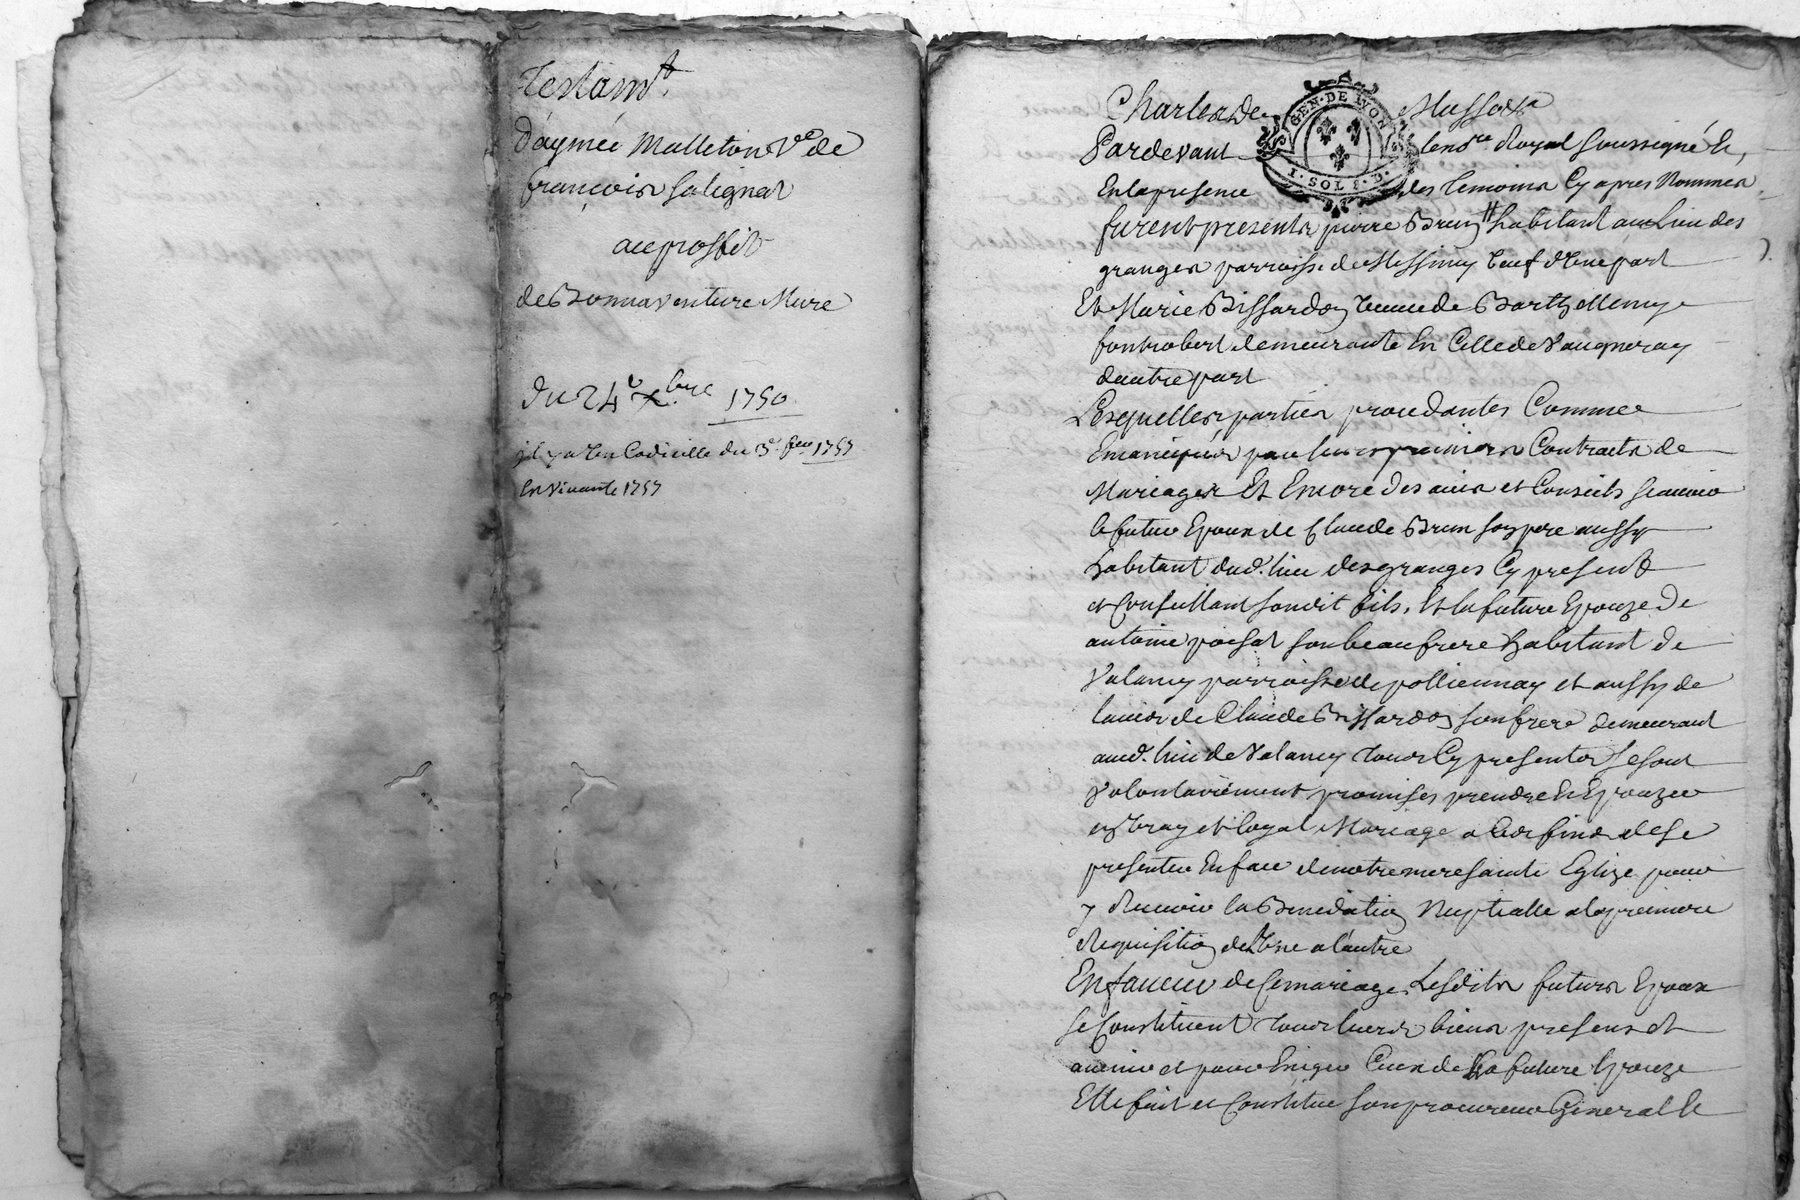 Testam.t
D'aymée Malleton V.e de
francois Salignat
au proffit
de Bonnaventure Mure
Du 24.e Xbre 1750
il y a un Codicille du 3.e 1757
En Vivante 1757
Charles De Musso
GEN·DE LYON
I·SOL 8·D·
Pardevant le no.re Royal soussigné &,
En la presence des temoins Cy apres Nommes
furent presents pierre Brun habitant au Lieu des
granges parroisse de Messimy veuf d'une part
Et Marie Bissardon veuve de Barthellemy
fontrobert demeurante En Celle de Vaugneray
d'autre part
Lesquelles parties procedantes Comme
Emancipés par leurs premiers Contracts de
Mariages Et Encore des avis et Conseils scavoir
le futur Epoux de Claude Brun son pere aussy
habitant dud. lieu des granges Cy present
et Consultant sondit fils, Et la future Epouze de
antoine poisat son beaufrere habitant de
Valancy parroisse de pollionnay et aussy de
l'avis de Claude Bissardon son frere demeurant
aud. lieu de Valancy tous Cy presents se sont
Volontairement promises prendre En Epouzer
en vray et loyal Mariage a Ces fins de se
presenter En face de notre mere sainte Eglize pour
y Recevoir la Benediction Nuptialle a la premiere
Requisition de L'une a l'autre
En faveur de Ce mariage Lesdits futurs Epoux
se Constituent tous leurs biens presens et
avenir et pour Exiger Ceux de la future Epouze
Elle fait et Constitue son procureur General &